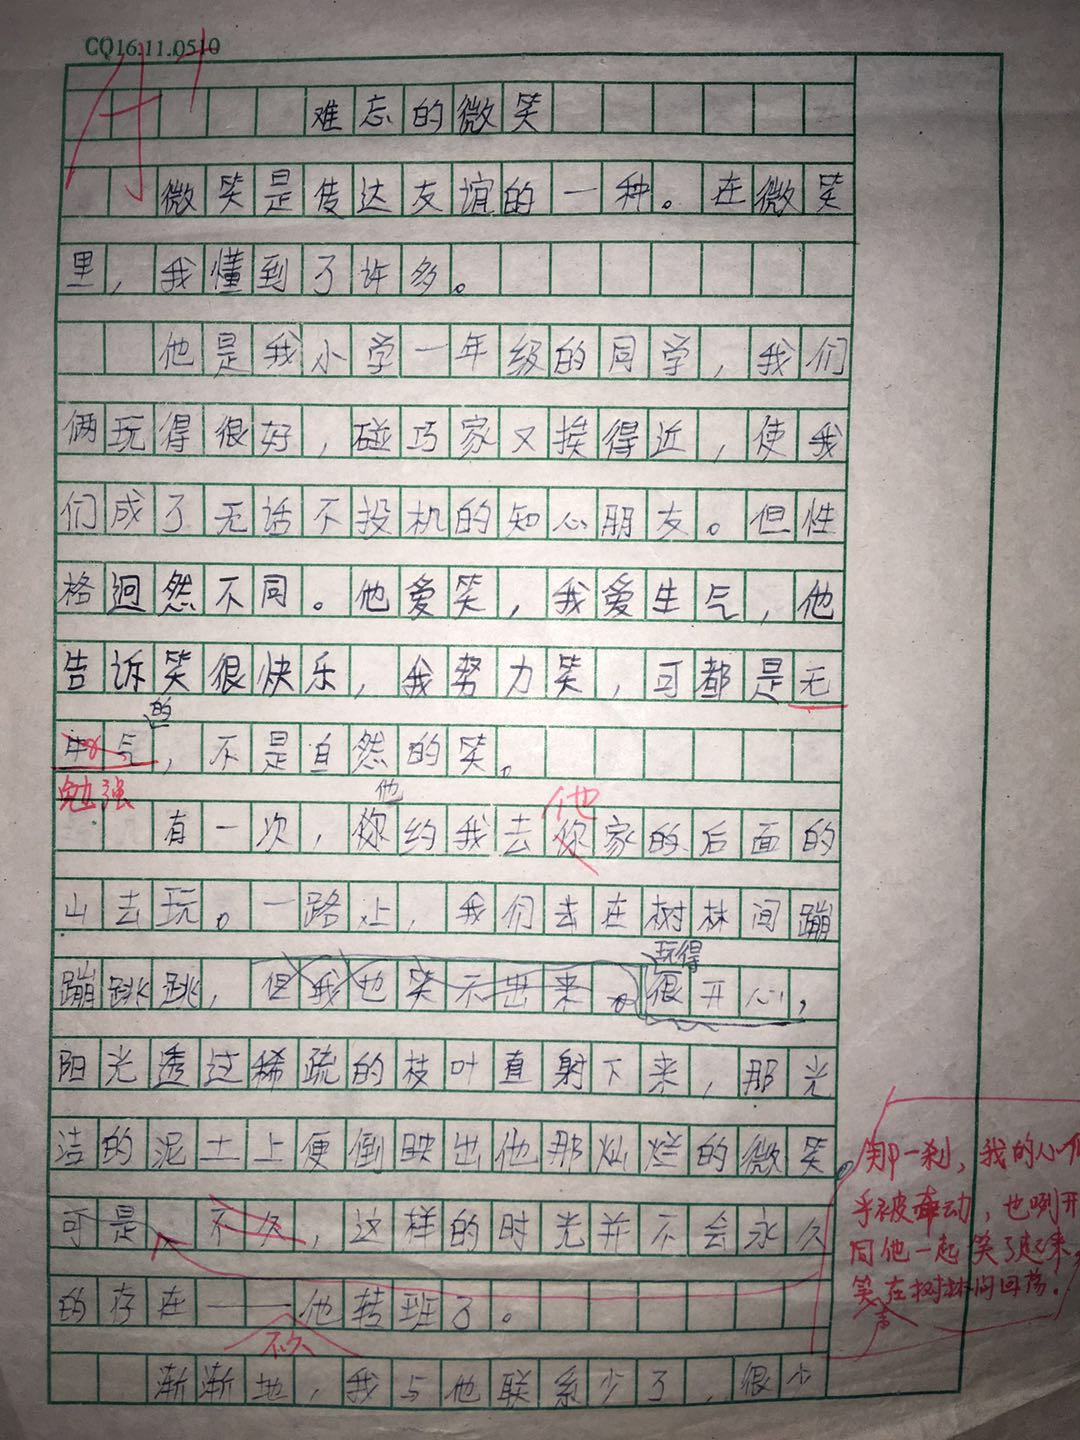 CQ16.11.0510
难忘的微笑
微笑是传达友谊的一种。在微笑
里，我懂到了许多。
他是我小学一年级的同学，我们
俩玩得很好，碰巧家又挨得近，使我
们成了无话不投机的知心朋友。但性
格迥然不同。他爱笑，我爱生气，他
告诉笑很快乐，我努力笑，可都是无
的
气，不是自然的笑。
勉强
他
他
有一次，你约我去你家的后面的
山去玩。一路上，我们去在树林间蹦
玩得
蹦跳跳，但我也笑不出来。很开心，
阳光透过稀疏的枝叶直射下来，那光
洁的泥土上便倒映出他那灿烂的微笑。
可是，不久，这样的时光并不会永久
的存在——他转班了。
不久
渐渐地，我与他联系少了，很少
那一刹，我的心似
乎被牵动，也咧开
同他一起笑了起来，
笑在树林间回荡。
声